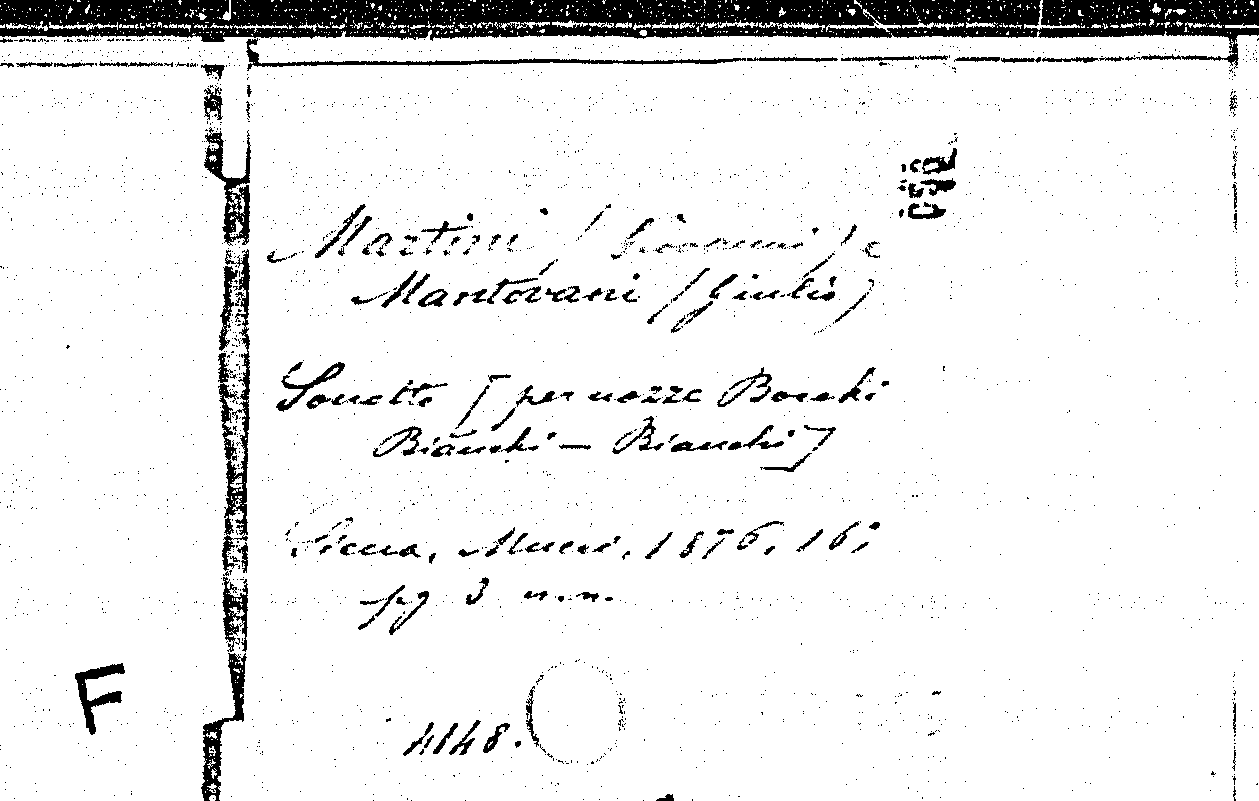 Martini (Giovanni) e
Mantovani (Giulio)
Sonetto [per nozze Bocchi
Bianchi - Bianchi]
Siena, Mucci, 1876, 16°
pg 3 n.n.
F
4148.